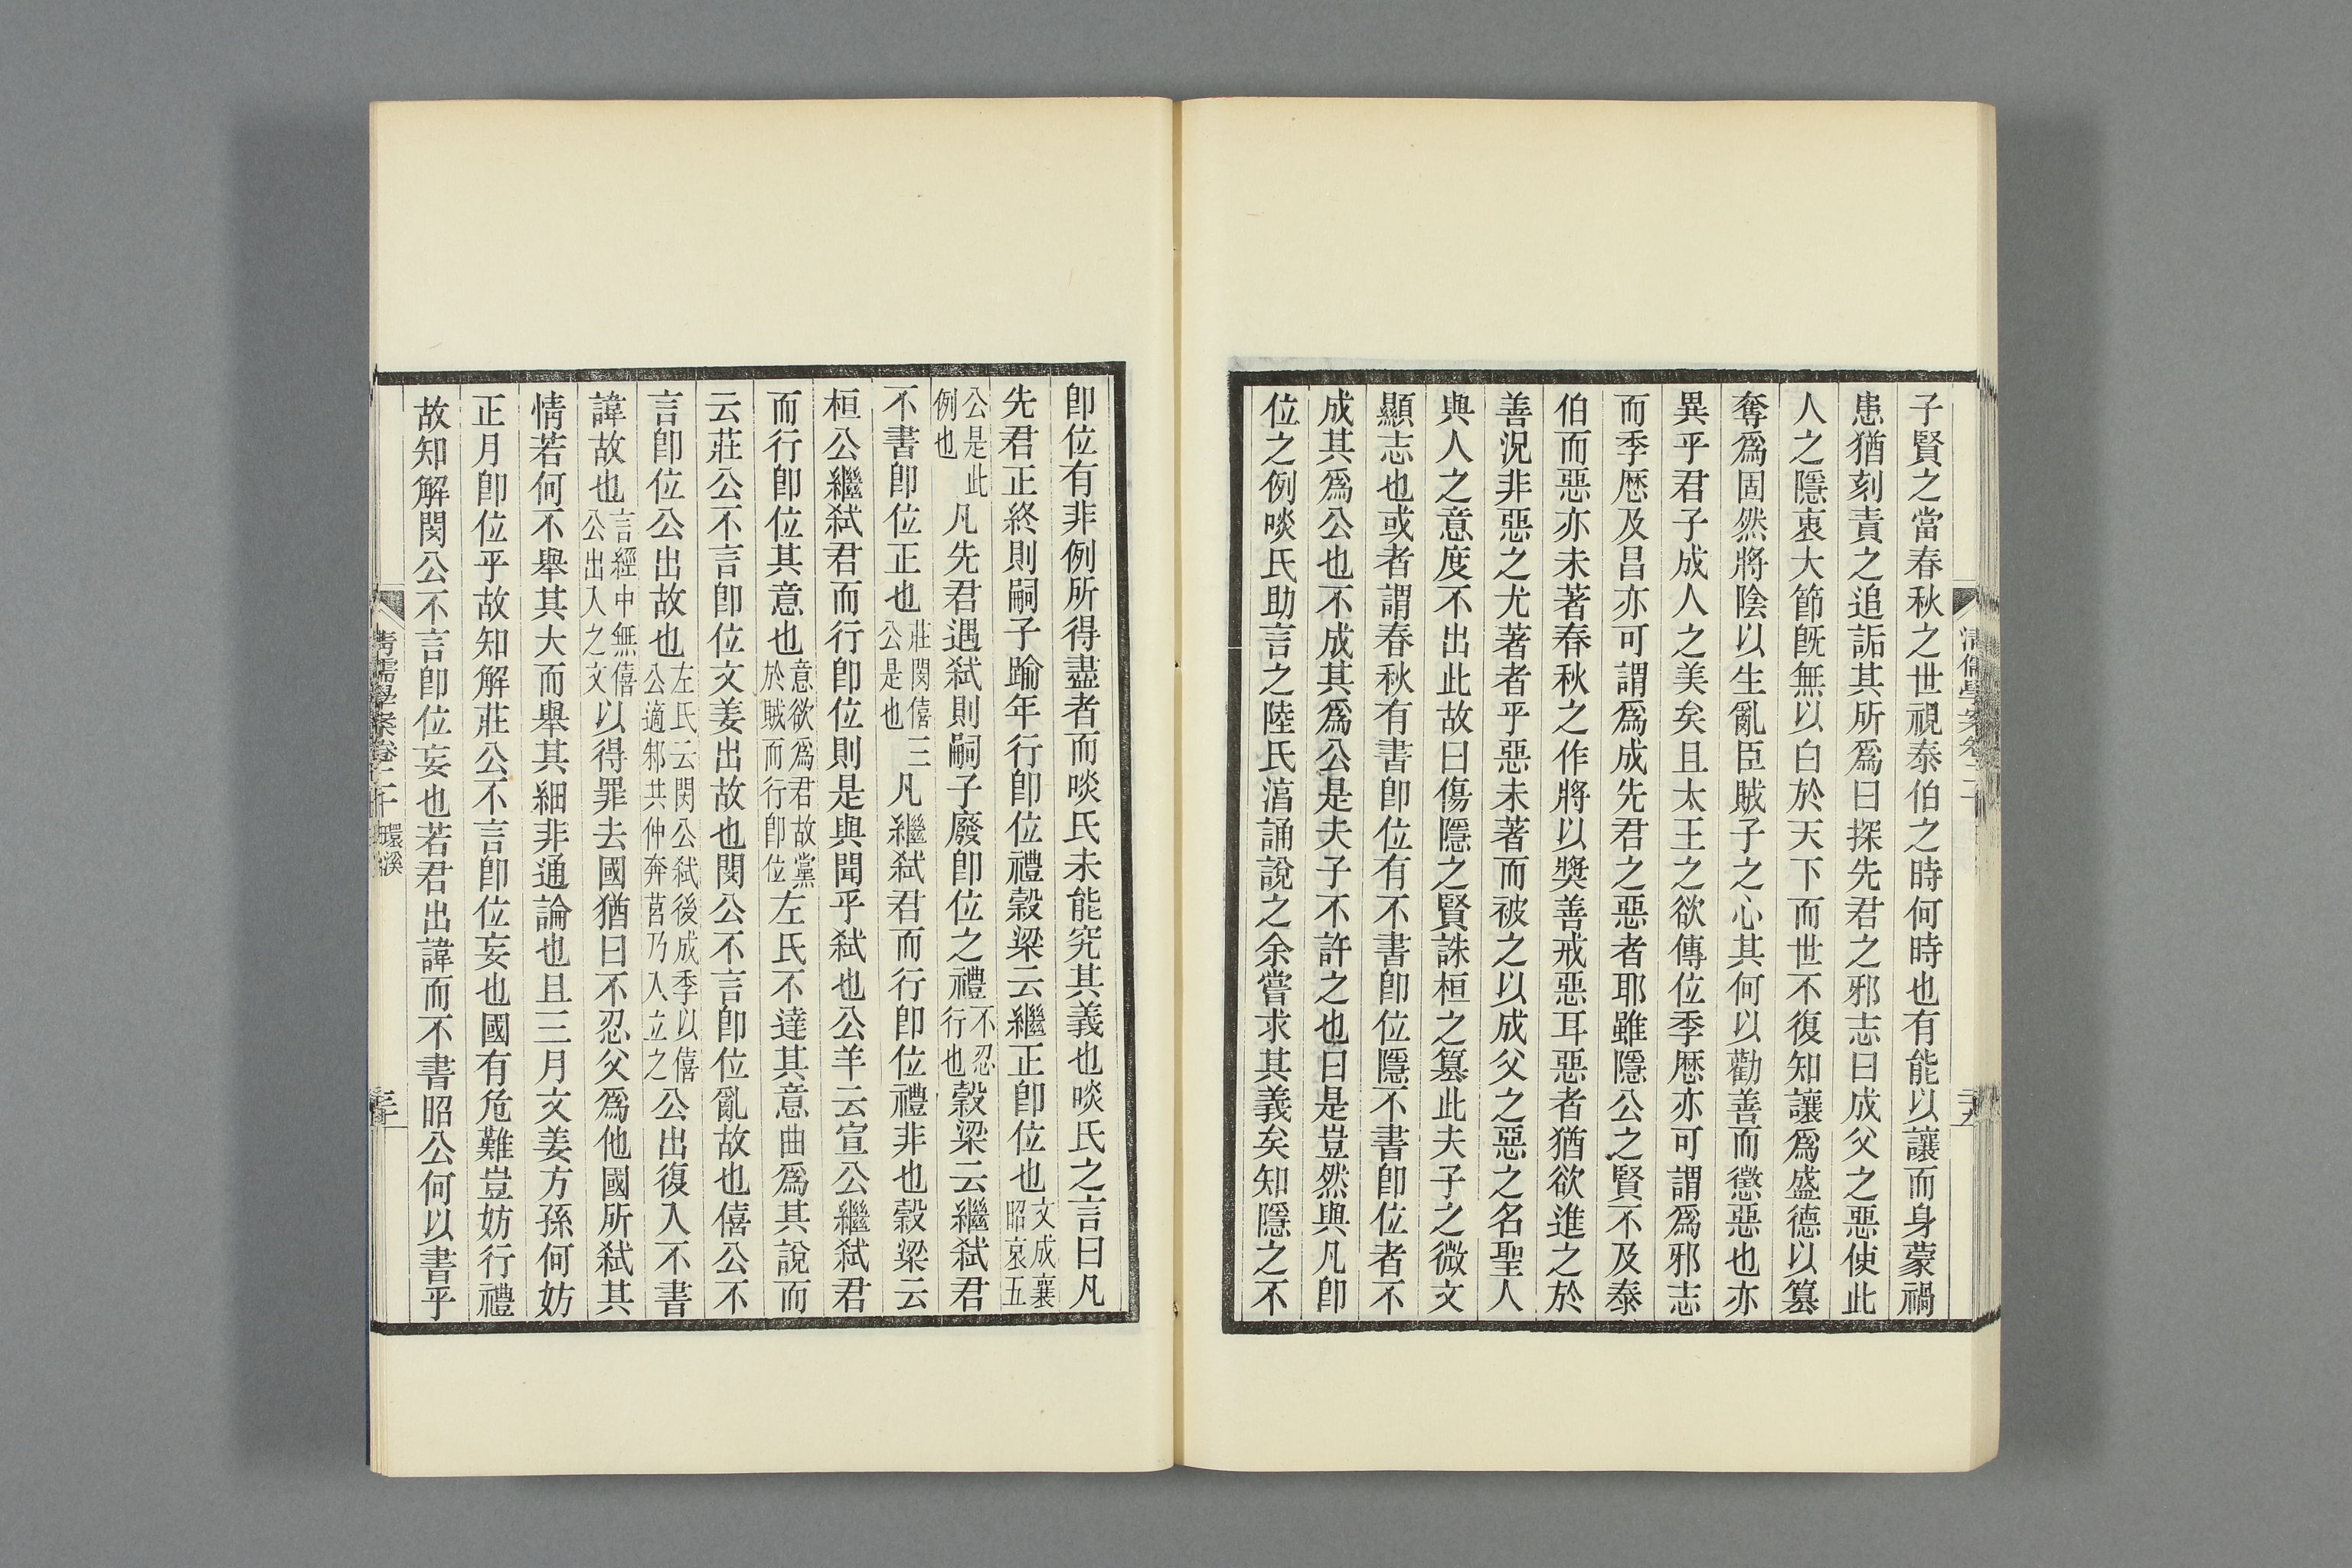 子賢之當春秋之世視泰伯之時何時也有能以讓而身蒙禍
患猶刻責之追詬其所爲曰探先君之邪志曰成父之惡使此
人之隱衷大節旣無以白於天下而世不復知讓爲盛德以篡
奪爲固然將陰以生亂臣賊子之心其何以勸善而懲惡也亦
異乎君子成人之美矣且太王之欲傳位季厯亦可謂爲邪志
而季厯及昌亦可謂爲成先君之惡者耶雖隱公之賢不及泰
伯而惡亦未著春秋之作將以獎善戒惡耳惡者猶欲進之於
善況非惡之尤著者乎惡未著而被之以成父之惡之名聖人
與人之意度不出此故曰傷隱之賢誅桓之篡此夫子之微文
顯志也或者謂春秋有書卽位有不書卽位隱不書卽位者不
成其爲公也不成其爲公是夫子不許之也曰是豈然與凡卽
位之例啖氏助言之陸氏淳誦說之余嘗求其義矣知隱之不
卽位有非例所得盡者而啖氏未能究其義也啖氏之言曰凡
先君正終則嗣子踰年行卽位禮穀梁云繼正卽位也文成襄昭哀五
公是此例也凡先君遇弒則嗣子廢卽位之禮不忍行也穀梁云繼弒君
不書卽位正也莊閔僖三公是也凡繼弒君而行卽位禮非也穀梁云
桓公繼弒君而行卽位則是與聞乎弒也公羊云宣公繼弒君
而行卽位其意也意欲爲君故黨於賊而行卽位左氏不達其意曲爲其說而
云莊公不言卽位文姜出故也閔公不言卽位亂故也僖公不
言卽位公出故也左氏云閔公弒後成季以僖公適邾共仲奔莒乃入立之公出復入不書
諱故也言經中無僖公出入之文以得罪去國猶曰不忍父爲他國所弒其
情若何不舉其大而舉其細非通論也且三月文姜方孫何妨
正月卽位乎故知解莊公不言卽位妄也國有危難豈妨行禮
故知解閔公不言卽位妄也若君出諱而不書昭公何以書乎